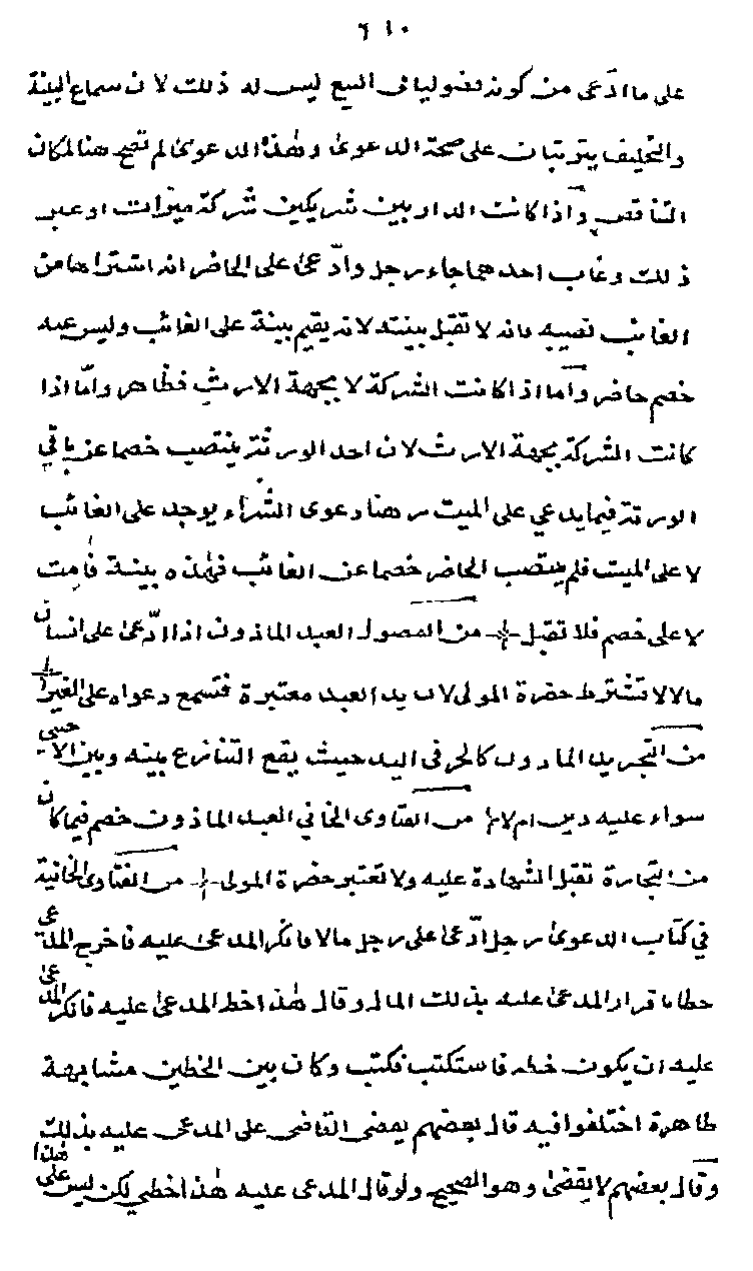 ٦١٠
على ما ادّعى من كونه فضوليا فى البيع ليس له ذلك لان سماع البينة
والتحليف يترتبان على صحة الدعوى وهذه الدعوى لم تصح هنا لمكان
التناقض واذا كانت الدار بين شريكين شركة ميراث او غير
ذلك وغاب احدهما جاء رجل وادّعى على الحاضر انه اشتراها من
الغائب نصيبه فانه لا تقبل بينته لانه يقيم بينة على الغائب وليس عنه
خصم حاضر وأما اذا كانت الشركة لا بجهة الارث فظاهر وأمّا اذا
كانت الشركة بجهة الارث لان احد الورثة ينتصب خصما عن باقي
الورثة فيما يدعي على الميت وهنا دعوى الشراء يوجد على الغائب
لا على الميت فلم ينتصب الحاضر خصما عن الغائب فهذه بينة قامت
لا على خصم فلا تقبل من الفصول العبد الماذون اذا ادّعى على انسان
مالا لا تشترط حضرة المولى لان يد العبد معتبرة فتسمع دعواه على الغير
من التجريد الماذون كالحر فى اليد حيث يقع التنازع بينه وبين الاجنبى
سواء عليه دين ام لا من الفتاوى الخاني العبد الماذون خصم فيما كان
من التجارة تقبل الشهادة عليه ولا تعتبر حضرة المولى من الفتاوى الخانية
في كتاب الدعوى رجل ادّعى على رجل مالا فانكر المدعى عليه فاخرج المدعى
خطا باقرار المدعى عليه بذلك المال وقال هذا خط المدعى عليه فانكر المدعى
عليه ان يكون خطه فاستكتب فكتب وكان بين الخطين مشابهة
ظاهرة اختلفوا فيه قال بعضهم يقضى القاضى على المدعى عليه بذلك
وقال بعضهم لا يقضى وهو الصحيح ولو قال المدعى عليه هذا خطي لكن ليس على هذا